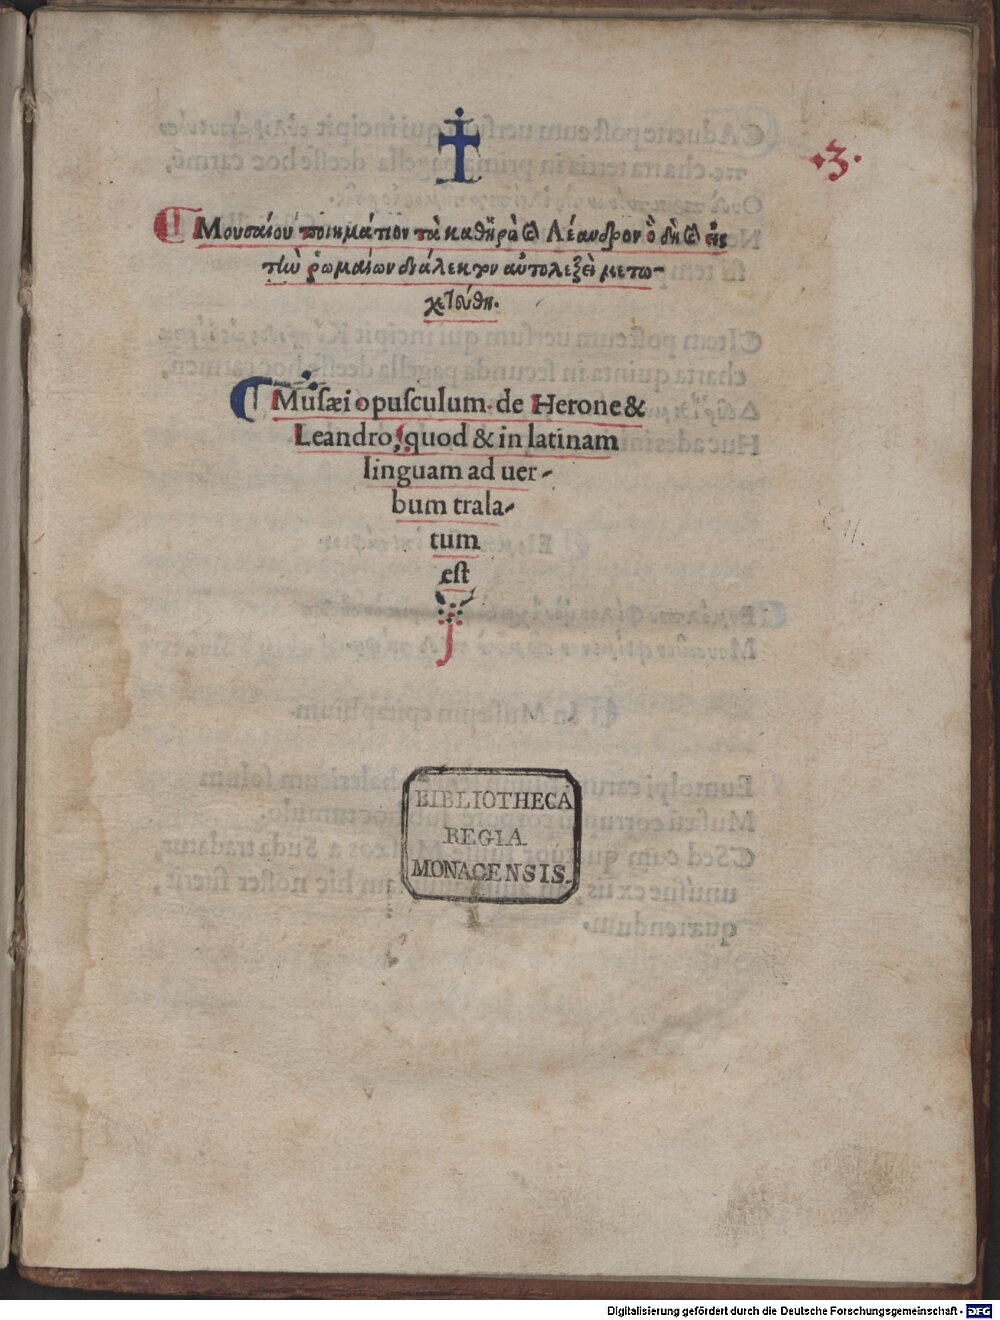 ·3·
Μουσαίου ποιημάτιον τὰ καθ' ἡρὼ καὶ Λέανδρον ὃ δὴ καὶ εἰς
τὴν ῥωμαίων διάλεκτον αὐτολεξεὶ μετω-
χετεύθη.
Muſæi opuſculum de Herone &
Leandro, quod & in latinam
linguam ad uer-
bum trala-
tum
eſt
BIBLIOTHECA
REGIA
MONACENSIS.
Digitalisierung gefördert durch die Deutsche Forschungsgemeinschaft - DFG